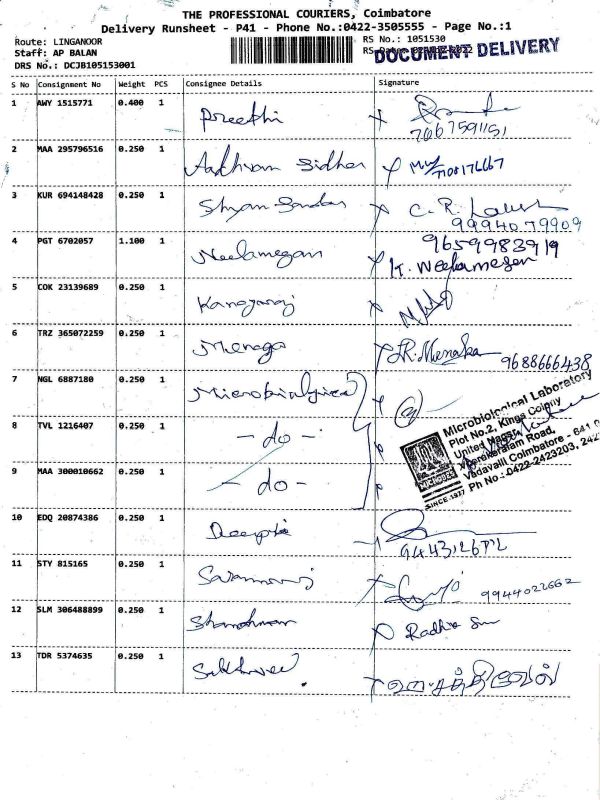 THE PROFESSIONAL COURIERS, Coimbatore
Delivery Runsheet - P41 - Phone No.:0422-3505555 - Page No.:1
Route: LINGANOOR
RS No.: 1051530
Staff: AP BALAN
DOCUMENT DELIVERY
DRS No.: DCJB105153001
S No Consignment No Weight PCS Consignee Details Signature
1 AWY 1515771 0.400 1 Preethi
7667591151
2 MAA 295796516 0.250 1 Aadhiram Sidher
3 KUR 694148428 0.250 1 Shyam Sundar C. R.
9994079909
4 PGT 6702057 1.100 1 Neelamegan 9659983919
K. Neelamegan
5 COK 23139689 0.250 1 Kanagaraj
6 TRZ 365072259 0.250 1 Menaga R. Menaka 9688666438
7 NGL 6887180 0.250 1
8 TVL 1216407 0.250 1 - do -
9 MAA 300010662 0.250 1 - do -
Microbiological Laboratory
Plot No.2, Kings Colony
United Nagar,
Road,
Vadavalli Coimbatore - 641 0
Ph No.:0422-2423203, 242
SINCE 1977
10 EDQ 20874386 0.250 1 Deepti
11 STY 815165 0.250 1 9944022662
12 SLM 306488899 0.250 1 Radha
13 TDR 5374635 0.250 1 Sakthivel